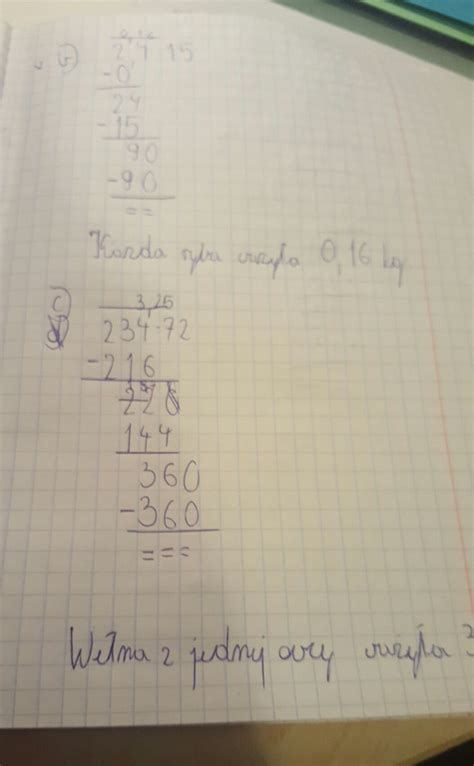 0,16
2,4 15
-0
24
-15
90
-90
==
Każda ryba waży 0,16 kg
c) 3,25
234:72
-216
144
360
-360
===
Wełna z jednej owcy waży 3